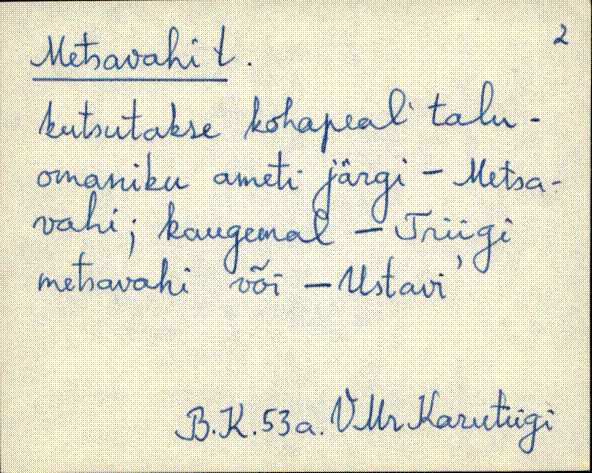 2
Metsavahi t.
kutsutakse kohapeal talu-
omaniku ameti järgi – Metsa-
vahi; kaugemal – Triigi
metsavahi või – Ustavi
B.K. 53a. VMr Karutiigi